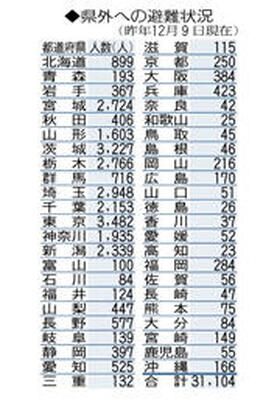 ◆県外への避難状況
(昨年12月9日現在)
都道府県 人数(人)
北海道 899
青森 193
岩手 367
宮城 2,724
秋田 406
山形 1,603
茨城 3,227
栃木 2,766
群馬 716
埼玉 2,948
千葉 2,153
東京 3,482
神奈川 1,935
新潟 2,339
富山 100
石川 84
福井 124
山梨 447
長野 577
岐阜 139
静岡 397
愛知 525
三重 132
滋賀 115
京都 250
大阪 384
兵庫 423
奈良 42
和歌山 25
鳥取 45
島根 46
岡山 216
広島 170
山口 51
徳島 26
香川 37
愛媛 52
高知 23
福岡 284
佐賀 56
長崎 47
熊本 75
大分 84
宮崎 149
鹿児島 55
沖縄 166
合計 31,104